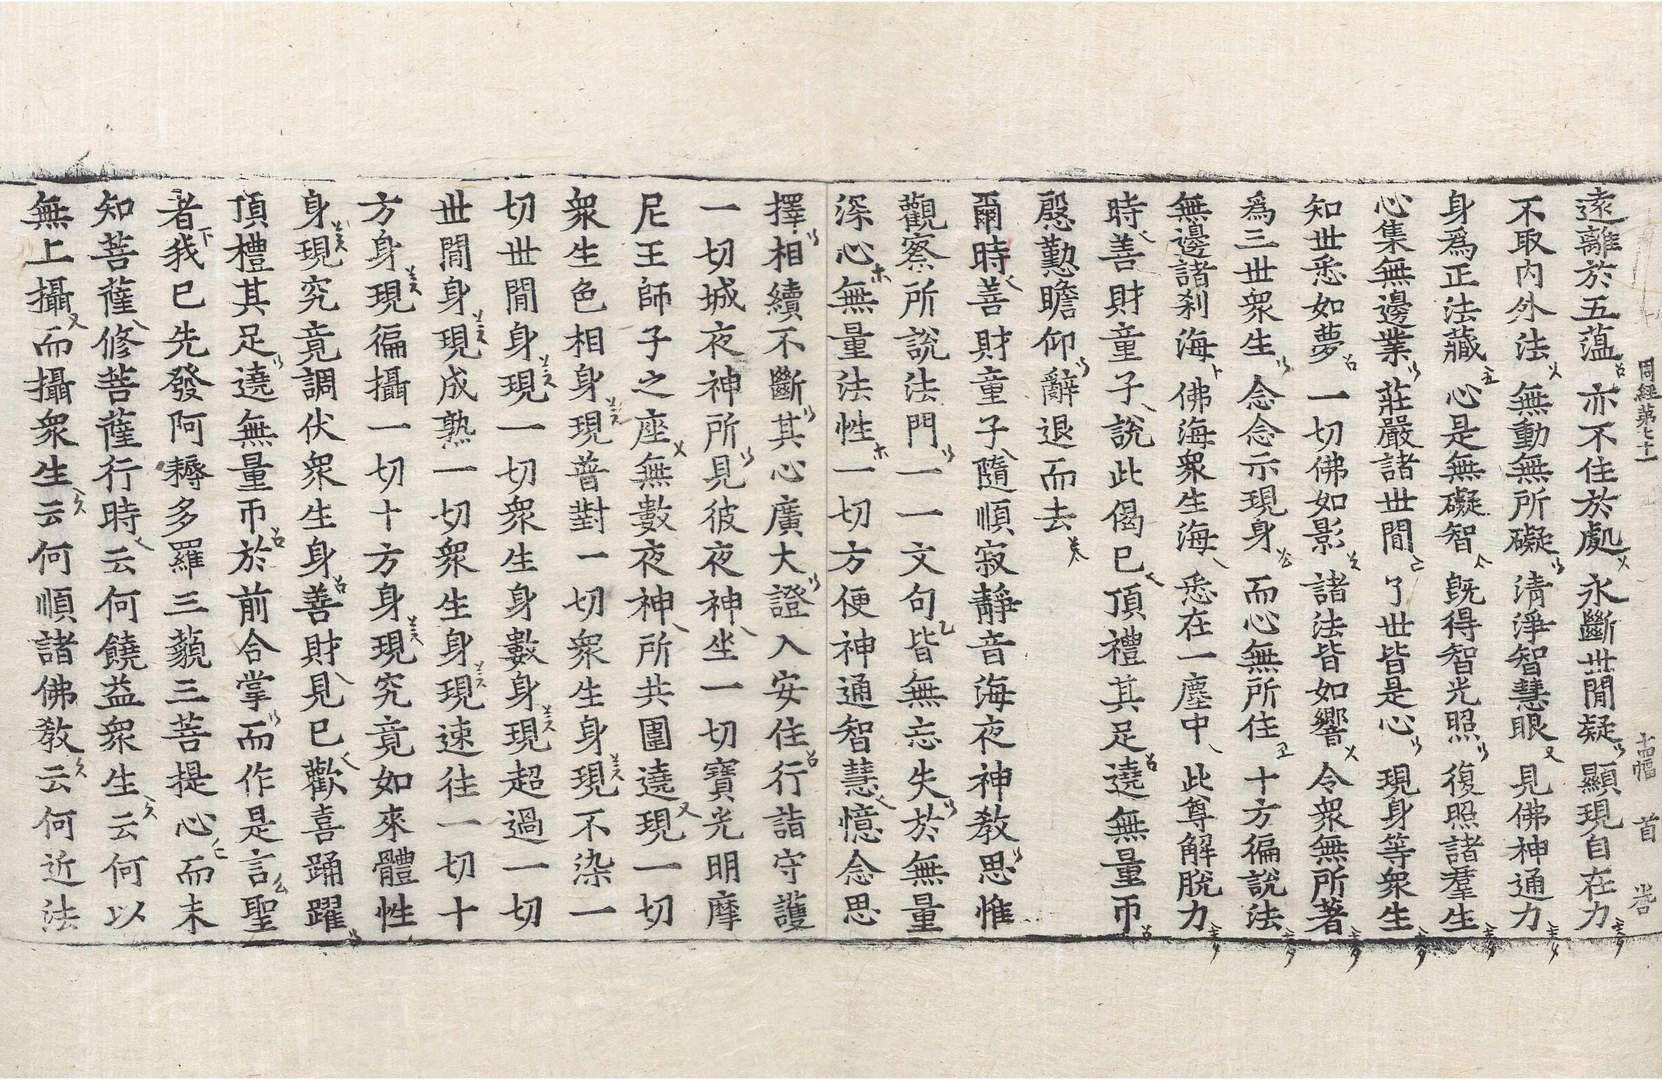 周經第七十一 十四幅 首
遠離於五蘊 亦不住於處 永斷世閒疑 顯現自在力
不取內外法 無動無所礙 清淨智慧眼 見佛神通力
身爲正法藏 心是無礙智 旣得智光照 復照諸羣生
心集無邊業 莊嚴諸世閒 了世皆是心 現身等衆生
知世悉如夢 一切佛如影 諸法皆如響 令衆無所著
爲三世衆生 念念示現身 而心無所住 十方徧說法
無邊諸剎海 佛海衆生海 悉在一塵中 此尊解脫力
時善財童子說此偈已頂禮其足遶無量帀
慇懃瞻仰辭退而去
爾時善財童子隨順寂靜音海夜神敎思惟
觀察所說法門一一文句皆無忘失於無量
深心無量法性一切方便神通智慧憶念思
擇相續不斷其心廣大證入安住行詣守護
一切城夜神所見彼夜神坐一切寶光明摩
尼王師子之座無數夜神所共圍遶現一切
衆生色相身現普對一切衆生身現不染一
切世閒身現一切衆生身數身現超過一切
世閒身現成熟一切衆生身現速往一切十
方身現徧攝一切十方身現究竟如來體性
身現究竟調伏衆生身善財見已歡喜踊躍
頂禮其足遶無量帀於前合掌而作是言聖
者我已先發阿耨多羅三藐三菩提心而未
知菩薩修菩薩行時云何饒益衆生云何以
無上攝而攝衆生云何順諸佛敎云何近法